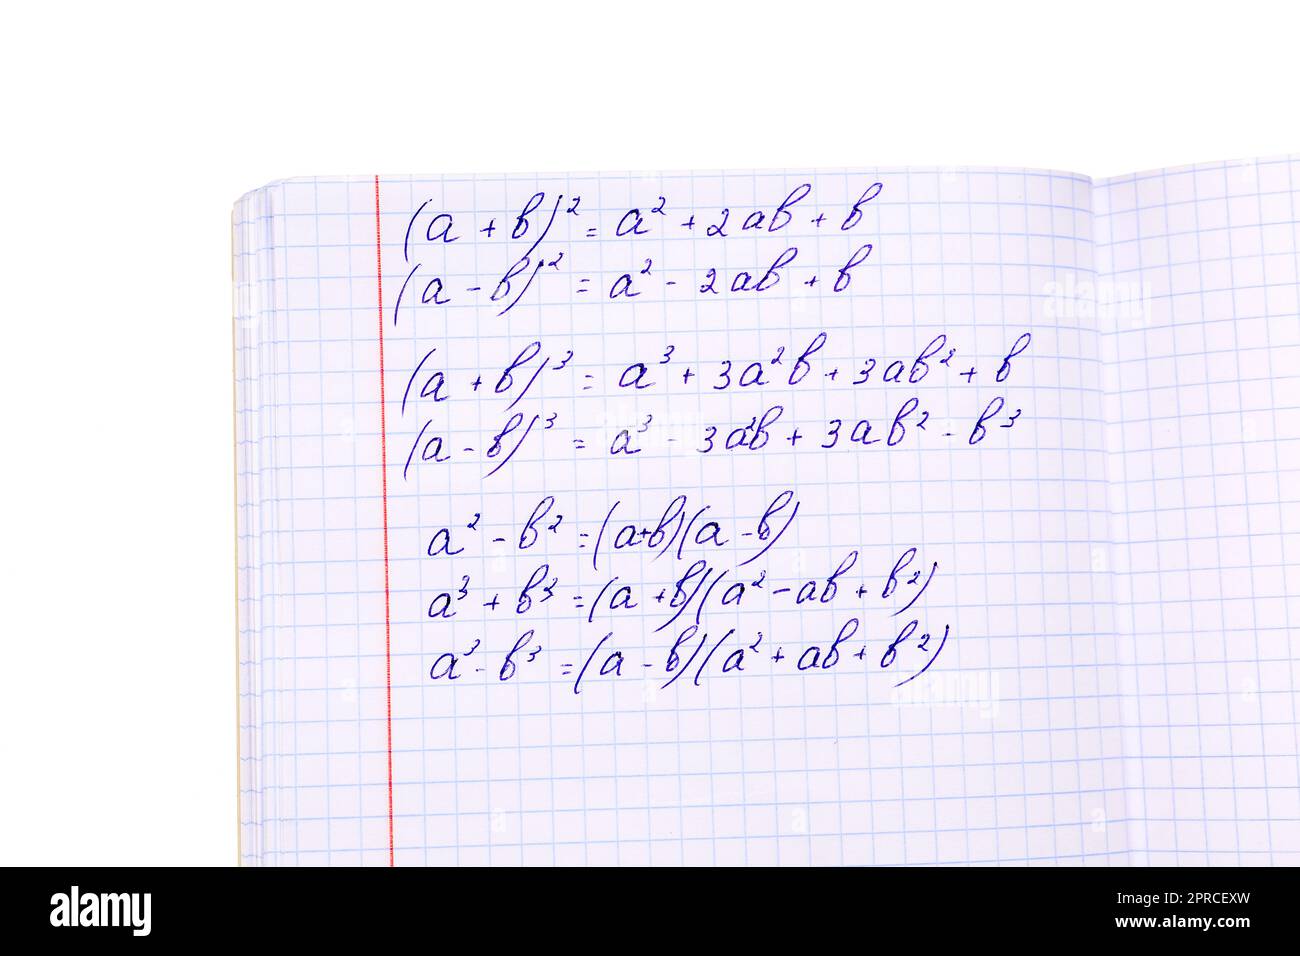 (a + b)² = a² + 2ab + b
(a - b)² = a² - 2ab + b
(a + b)³ = a³ + 3a²b + 3ab² + b
(a - b)³ = a³ - 3a²b + 3ab² - b³
a² - b² = (a+b)(a - b)
a³ + b³ = (a + b)(a² - ab + b²)
a³ - b³ = (a - b)(a² + ab + b²)
alamy
Image ID: 2PRCEXW
www.alamy.com